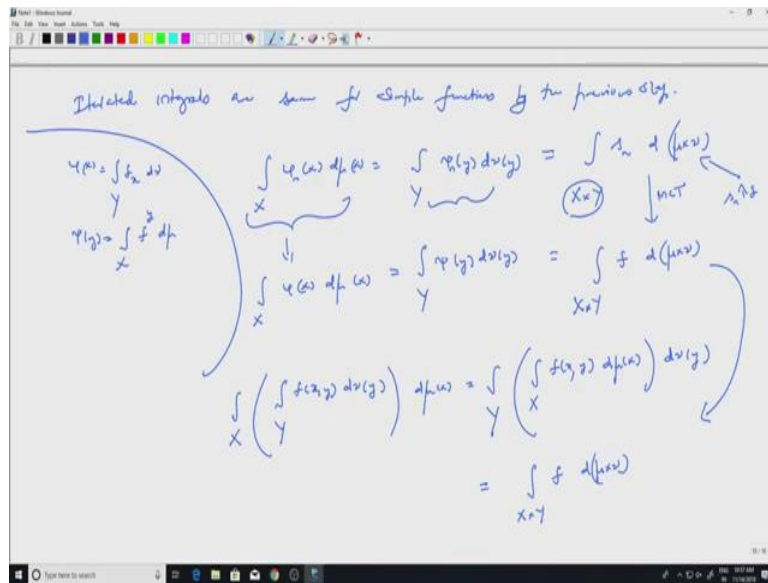 Note1 - Windows Journal
File Edit View Insert Actions Tools Help
Iterated integrals are same for simple functions by the previous step.
φ(x) = ∫_Y f_x dν
ψ(y) = ∫_X f^y dμ
∫_X φ_n(x) dμ(x) = ∫_Y ψ_n(y) dν(y) = ∫_{X×Y} s_n d(μ×ν)
↓ MCT
s_n ↑ f
∫_X φ(x) dμ(x) = ∫_Y ψ(y) dν(y) = ∫_{X×Y} f d(μ×ν)
∫_X ( ∫_Y f(x,y) dν(y) ) dμ(x) = ∫_Y ( ∫_X f(x,y) dμ(x) ) dν(y)
= ∫_{X×Y} f d(μ×ν)
Type here to search
ENG
10:57 AM
IN